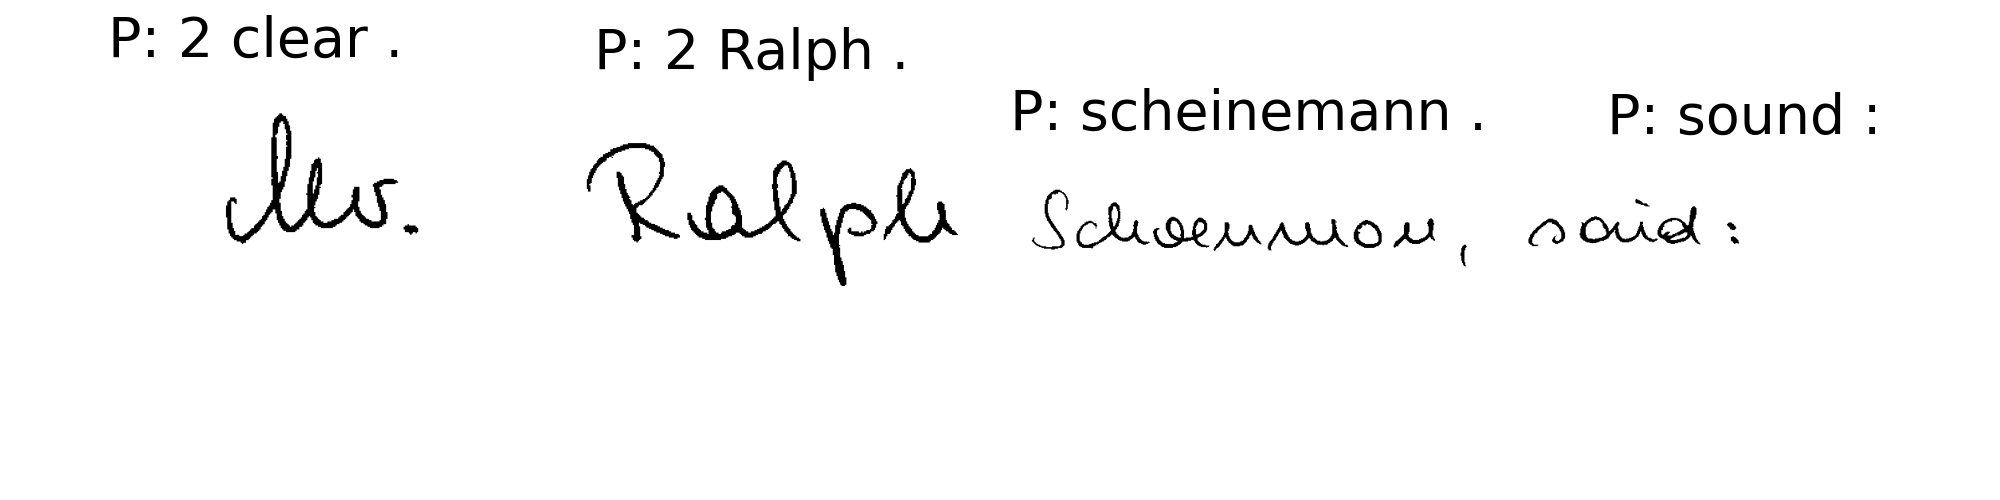 P: 2 clear . P: 2 Ralph . P: scheinemann . P: sound :
Mr. Ralph Schoenman, said: